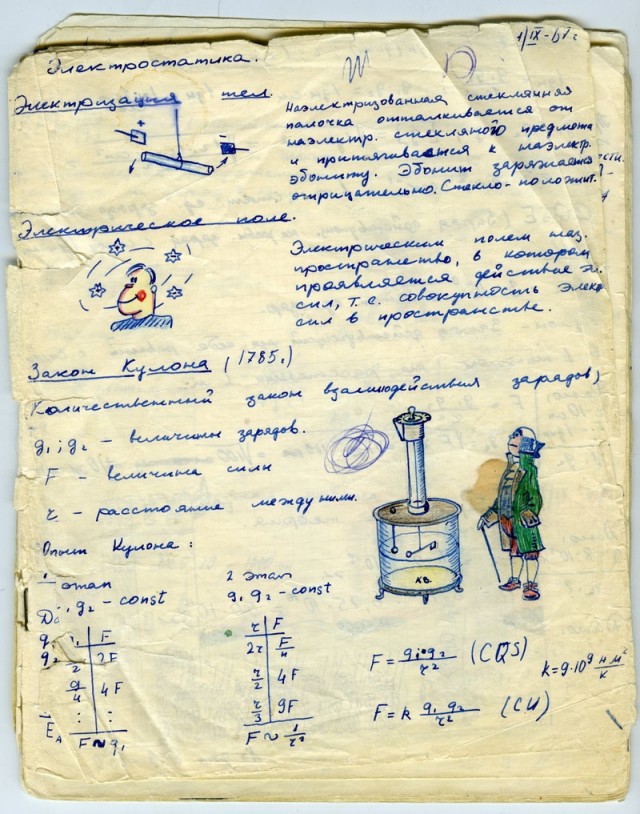 1/IX-61г
Электростатика.
Электризация тел.
+
-
Наэлектризованная стеклянная
палочка отталкивается от
наэлектр. стекляного предмета
и притягивается к наэлектр.
эбониту. Эбонит заряжается
отрицательно. Стекло - положит.
Электрическое поле.
Электрическим полем наз.
пространство, в котором
проявляется действие эл.
сил, т.е. совокупность элект
сил в пространстве.
Закон Кулона (1785г.)
Количественный закон взаимодействия зарядов)
q₁; q₂ - величины зарядов.
F - величина силы
r - расстояние между ними.
Опыт Кулона:
КВ.
этап
q₂ - const
F
2F
q/4 4F
⋮ ⋮
E_A
F ~ q₁
2 этап
q₁ q₂ - const
r F
2r F/4
r/2 4F
r/3 9F
F ~ 1/r²
F = q₁•q₂/r² (CQS)
F = k q₁ q₂/r² (СИ)
k=9·10⁹ н м²/к